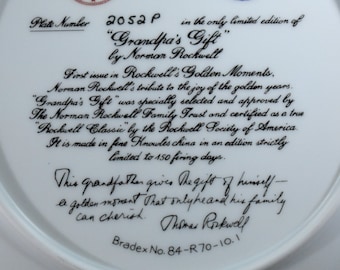 Plate Number 2052P in the only limited edition of
"Grandpa's Gift"
by Norman Rockwell
First issue in Rockwell's Golden Moments,
Norman Rockwell's tribute to the joy of the golden years.
"Grandpa's Gift" was specially selected and approved by
The Norman Rockwell Family Trust and certified as a true
"Rockwell Classic by the Rockwell Society of America.
It is made in fine Knowles china in an edition strictly
limited to 150 firing days.
This grandfather gives the gift of himself—
a golden moment that only he and his family
can cherish. Thomas Rockwell
Bradex No. 84-R70-10.1